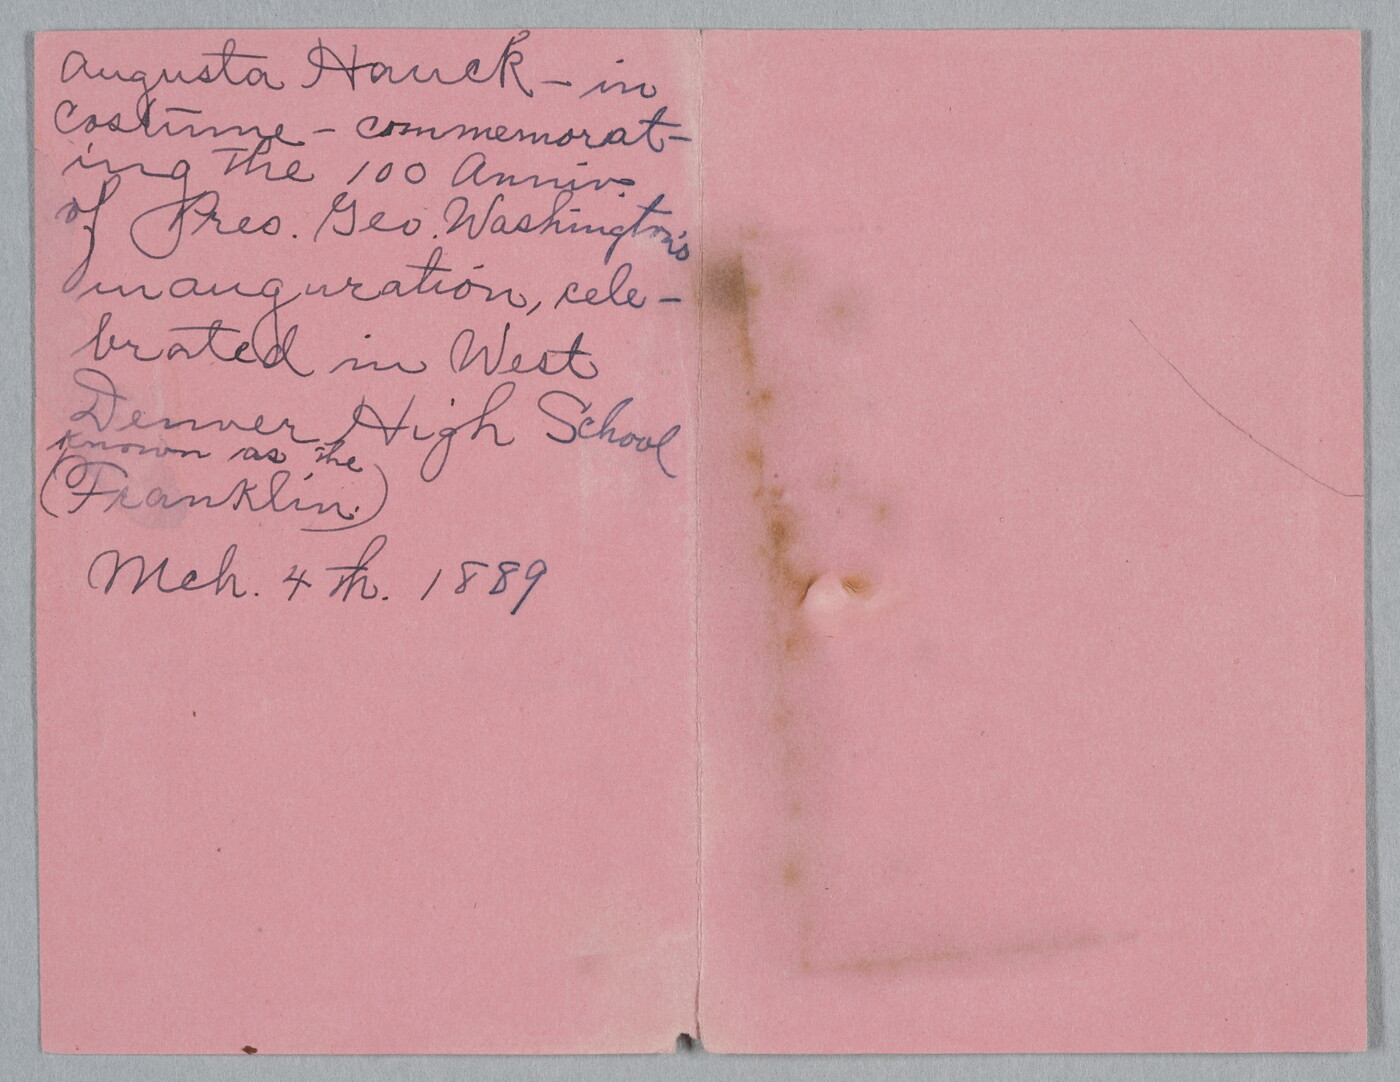 Augusta Hauck - in
Costume - commemorat-
ing the 100 Anniv.
of Pres. Geo. Washington's
inauguration, cele-
brated in West
Denver High School
known as the
(Franklin.)
Mch. 4th. 1889